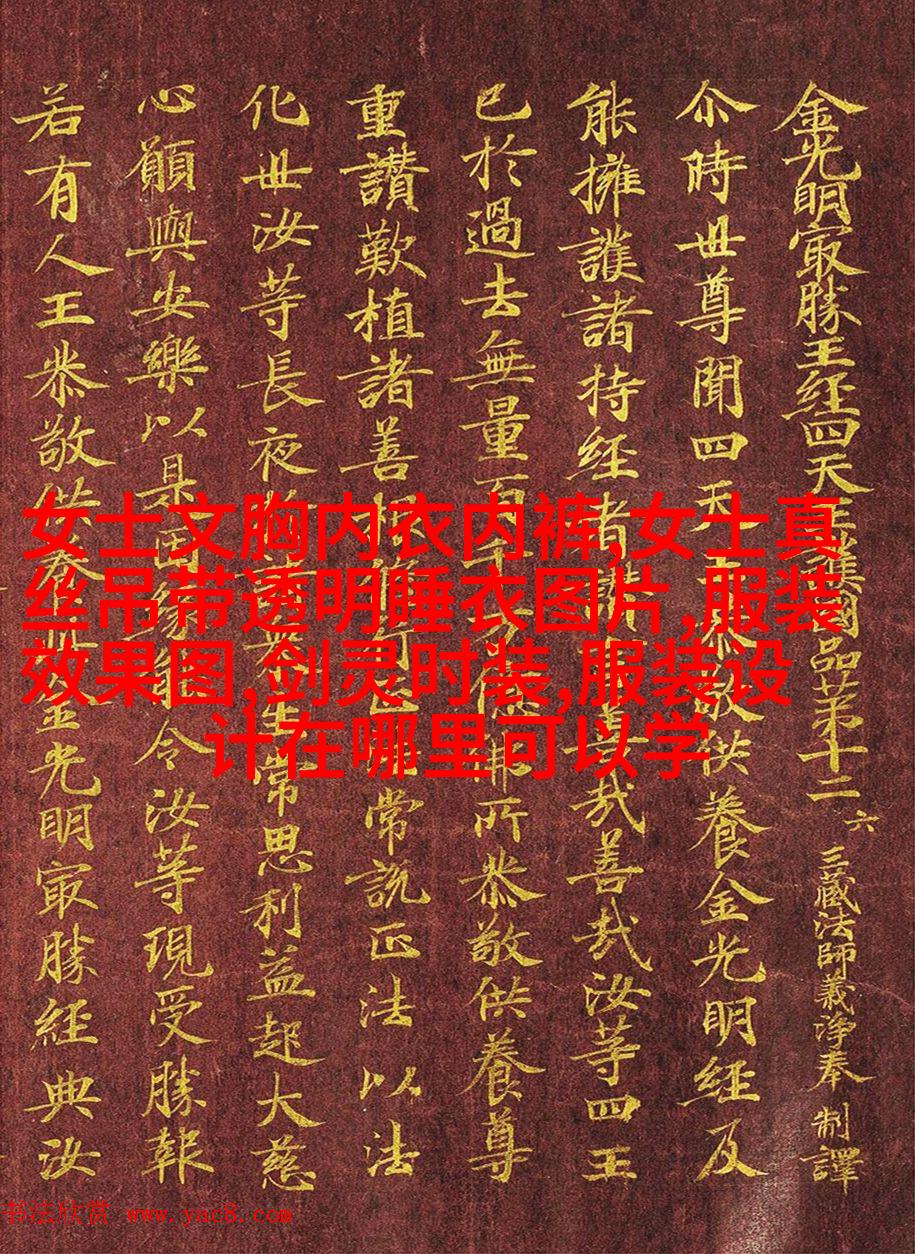 金光明冣勝王経四天王護國品苐十二 六 三藏法師義淨奉 制譯
尒時世尊聞四天王恭敬供養金光明経及
能擁護諸持経者讚善哉善哉汝等四王
已於過去無量百千佛所恭敬供養尊
重讚歎植諸善根修行正常說正法以法
化世汝等長夜眾生常思利益起大慈
心願與安樂以是因緣能令汝等現受勝報
若有人王恭敬供養此金光明冣勝経典汝
女士文胸内衣内裤,女士真
丝吊带透明睡衣图片,服装
效果图,剑灵时装,服装设
计在哪里可以学
书法欣赏 www.yac8.com